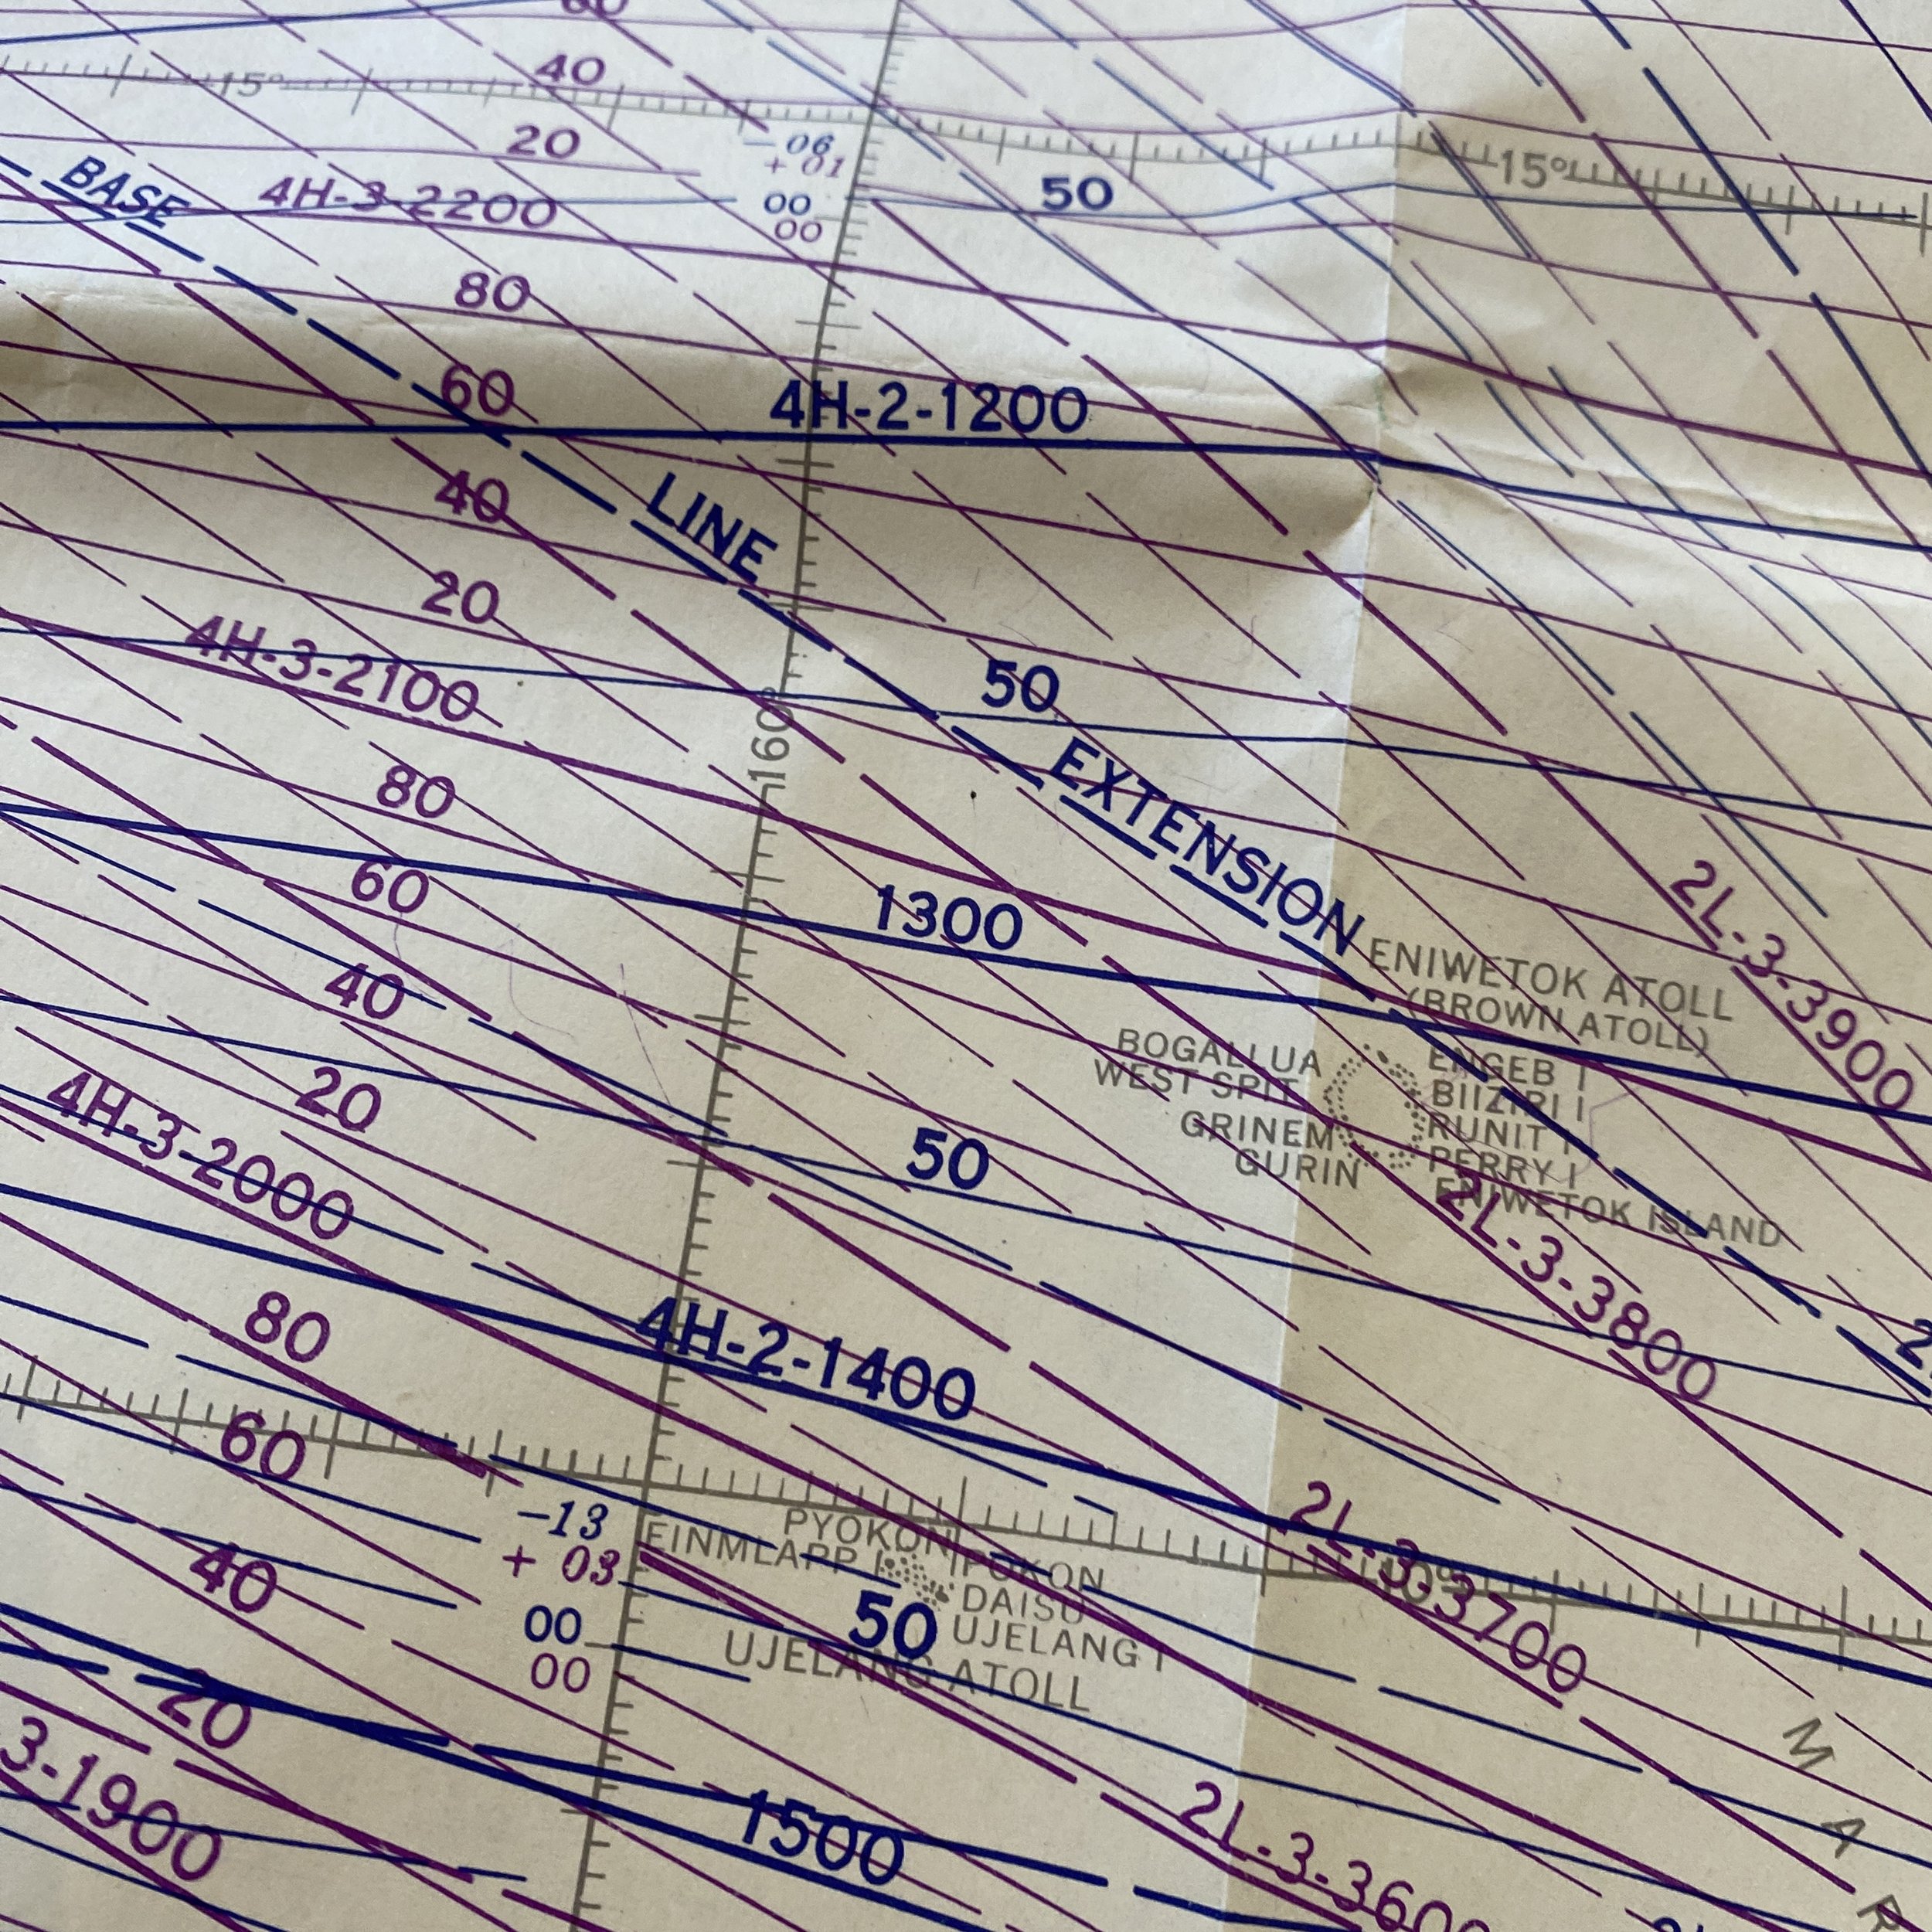 40
15°
20
- 06
+ 01
BASE
4H-3-2200
00
00
50
15°
80
60
4H-2-1200
40
LINE
20
4H-3-2100
50
160°
EXTENSION
80
60
1300
2L-3-3900
ENIWETOK ATOLL
(BROWN ATOLL)
40
BOGALLUA
WEST SPIT
GRINEM
GURIN
ENGEB I
BIIZIRI I
RUNIT I
PERRY I
ENIWETOK ISLAND
20
4H-3-2000
50
2L-3-3800
80
4H-2-1400
60
-13
+ 03
PYOKON I
EINMLAPP I
POKON
DAISU
UJELANG I
UJELANG ATOLL
50
2L-3-3700
10°
40
00
00
20
3-1900
1500
2L-3-3600
M
A
R